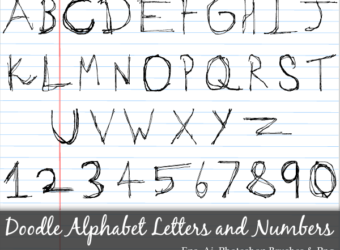 ABCDEFGHIJ
KLMNOPQRST
UVWXYZ
1234567890
Doodle Alphabet Letters and Numbers